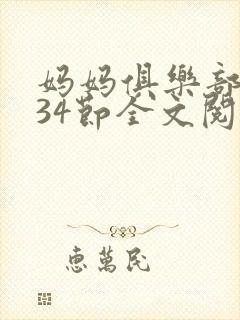 妈妈俱樂部
34節全文閱
惠萬民